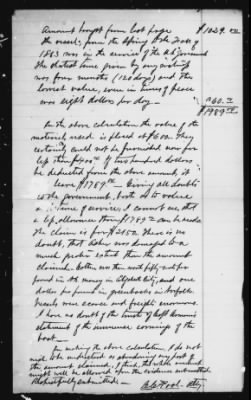 Amount brought from last page $1029.00
The vessel, from the Spring of the year of
1863 was in the service of the U.S. Government
the shortest time given by any witness
was four months (120 days) and the
lowest value, even in times of peace
was eight dollars per day — $960.00
$1989.00
In the above calculation the value of the
materials used is placed at $600. They
certainly could not be furnished now for
less than $400.00 If two hundred dollars
be deducted from the above amount, it
leaves $1789.00 — Giving all doubts
to the government, both as to value
and time of services, I cannot see that
a less allowance than $1789.00 can be made
The claim is for $2150. There is no
doubt, that was damaged to a
much greater extent than the amount
claimed. Cotton was then worth fifty-cents per
pound in U.S. money in City, and one
dollar per pound in greenbacks in Norfolk
Vessels were scarce and freights enormous.
I have no doubt of the truth of
statement of the immense earnings of the
boat —
In making the above calculation, I do not
wish to be understood as abandoning any part of
the amount claimed. I think, the whole amount
might well be allowed upon the evidence submitted
Respectfully submitted — Atty.